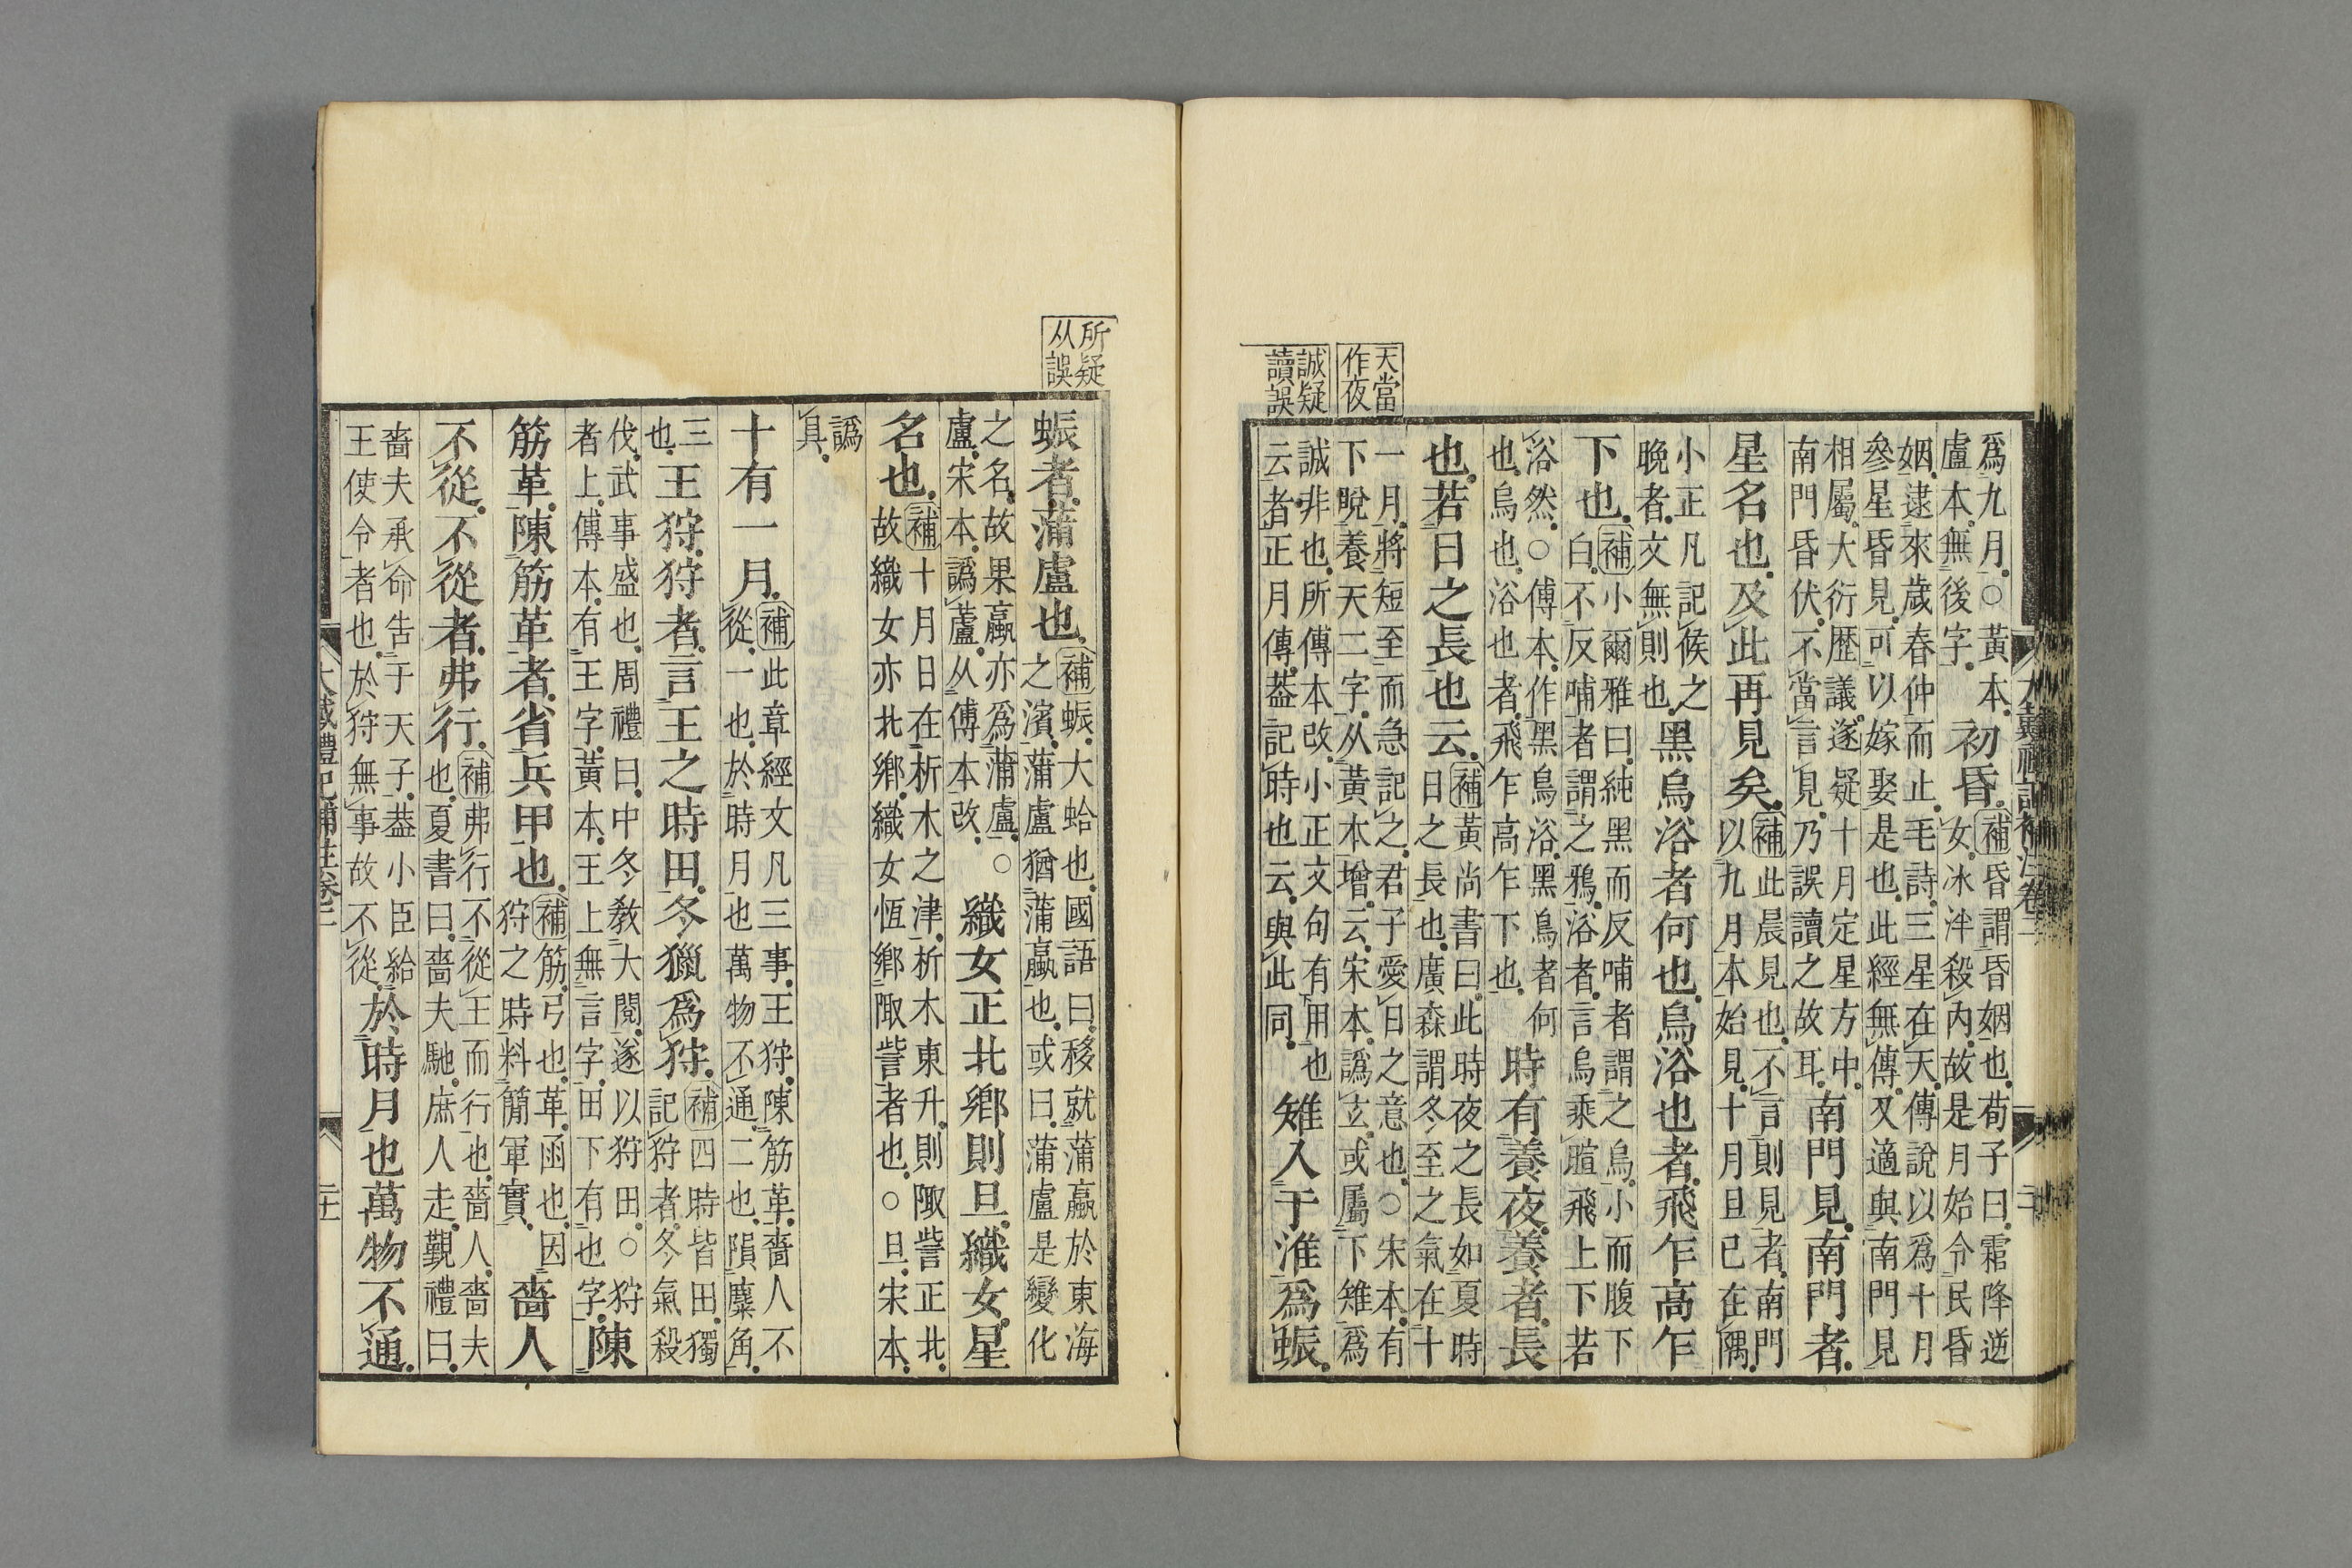 天當
作夜
誠疑
讀誤
爲九月○黃本
盧本無後字
初昏
補昏謂昏姻也荀子曰霜降逆
女冰泮殺內故是月始令民昏
姻逮來歲春仲而止毛詩三星在天傳說以爲十月
參星昏見可以嫁娶是也此經無傳又適與南門見
相屬大衍歷議遂疑十月定星方中
南門昏伏不當言見乃誤讀之故耳
南門見南門者
星名也及此再見矣
補此晨見也不言則見者南門
以九月本始見十月旦已在隅
小正凡記候之
晚者文無則也
黑烏浴者何也烏浴也者飛乍高乍
下也
補小爾雅曰純黑而反哺者謂之烏小而腹下
白不反哺者謂之鴉浴者言烏乘暄飛上下若
浴然○傅本作黑鳥浴黑鳥者何
也烏也浴也者飛乍高乍下也
時有養夜養者長
也若日之長也云
補黃尚書曰此時夜之長如夏時
日之長也廣森謂冬至之氣在十
一月將短至而急記之君子愛日之意也○宋本有
下睨養天二字从黃本增云宋本譌玄或屬下雉爲
誠非也所傅本改小正文句有用也
云者正月傳葢記時也云與此同
雉入于淮爲蜄
大戴禮記補注卷二
所疑
从誤
蜄者蒲盧也
補蜄大蛤也國語曰移就蒲蠃於東海
之濱蒲盧猶蒲蠃也或曰蒲盧是變化
之名故果蠃亦爲蒲盧○
盧宋本譌蘆从傅本改
織女正北鄉則旦織女星
名也
補十月日在析木之津析木東升則陬訾正北
故織女亦北鄉織女恆鄉陬訾者也○旦宋本
譌
具
十有一月
補此章經文凡三事王狩陳筋革嗇人不
從一也於時月也萬物不通二也隕麋角
三
也
王狩狩者言王之時田冬獵爲狩
補四時皆田獨
記狩者冬氣殺
伐武事盛也周禮曰中冬敎大閱遂以狩田○狩
者上傅本有王字黃本王上無言字田下有也字
陳
筋革陳筋革者省兵甲也
補筋弓也革函也因
狩之時料簡軍實
嗇人
不從不從者弗行
補弗行不從王而行也嗇人嗇夫
也夏書曰嗇夫馳庶人走覲禮曰
嗇夫承命告于天子葢小臣給
王使令者也於狩無事故不從
於時月也萬物不通
大戴禮記補注卷二
二十